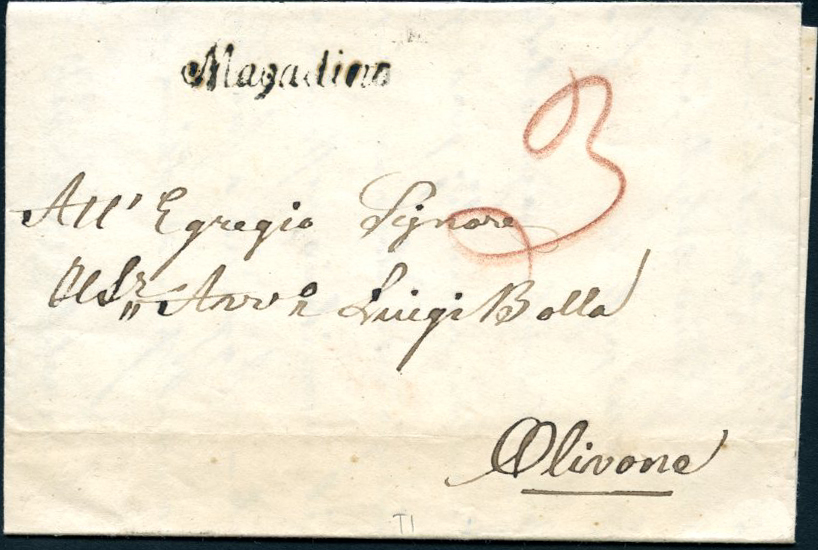 Magadino
3
All' Egregio Signore
Al Sr. Avvo Luigi Bolla
Olivone
TI